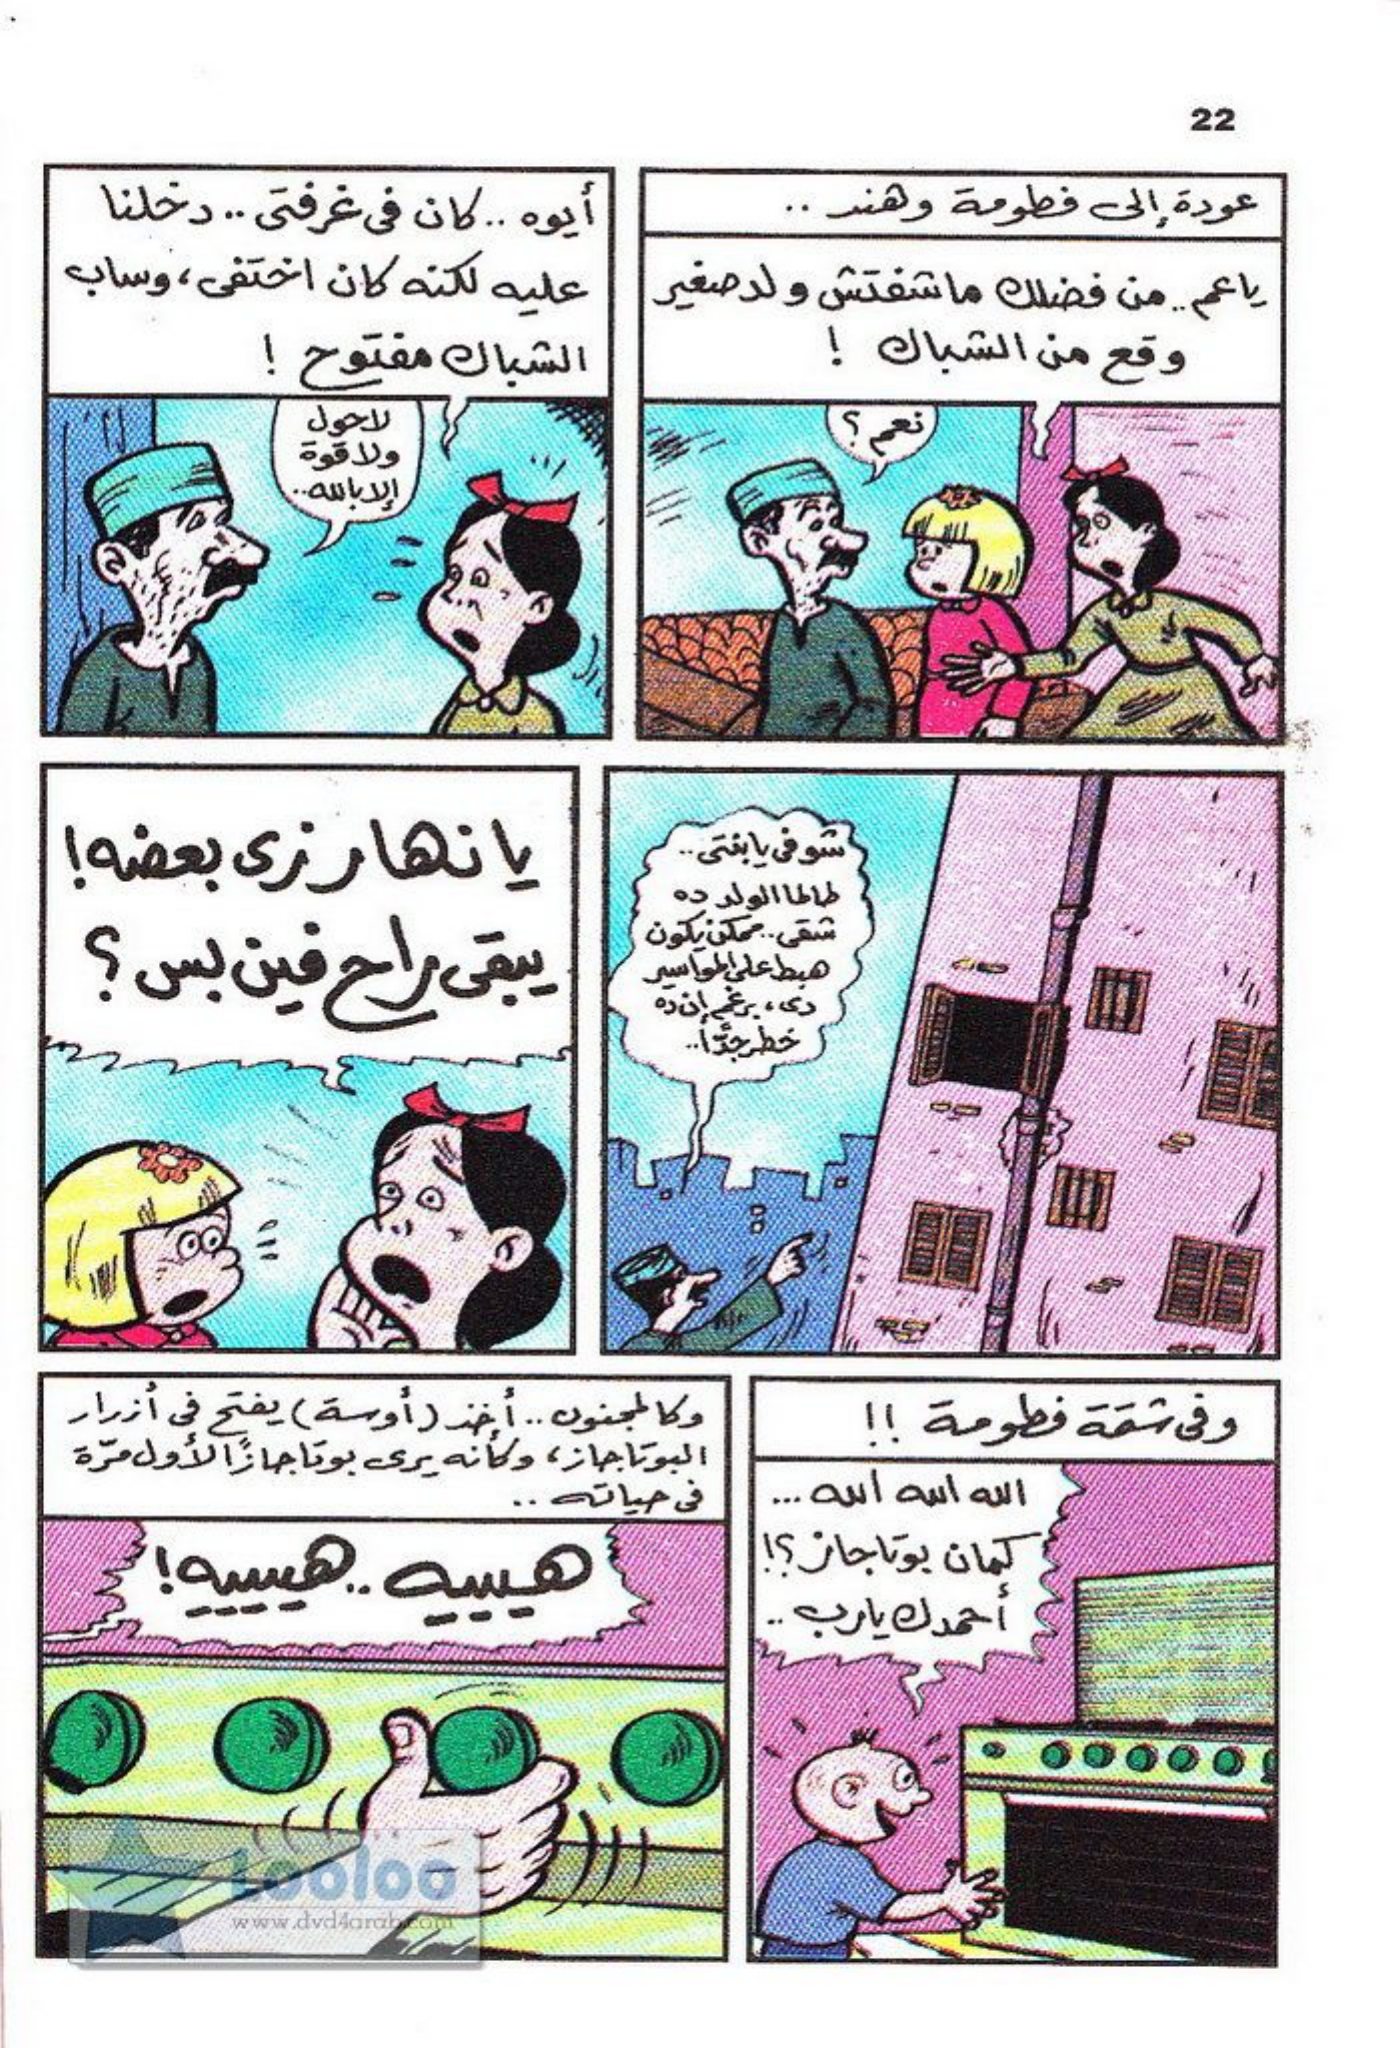 22
عودة إلى فطومة وهند ..
ياعم .. من فضلك ماشفتش ولد صغير
وقع من الشباك !
نعم ؟
أيوه .. كان فى غرفتى .. دخلنا
عليه لكنه كان اختفى ، وساب
الشباك مفتوح !
لاحول
ولا قوة
إلا بالله ..
شوفى يا بنتى ..
طالما الولد ده
شقى .. ممكن يكون
هبط على المواسير
دى ، برغم إن ده
خطر جدًّا ..
يا نهار زى بعضه !
يبقى راح فين بس ؟
وفى شقة فطومة !!
الله الله الله ...
كمان بوتاجاز ؟!
أحمدك يارب ..
وكالمجنون .. أخذ ( أوسة ) يفتح فى أزرار
البوتاجاز ، وكأنه يرى بوتاجازًا لأول مرّة
فى حياته ..
هيييه .. هييييه !
Looloo
www.dvd4arab.com